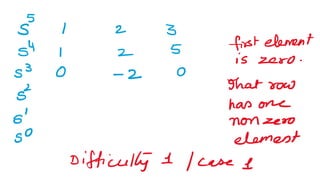 s⁵ 1 2 3
s⁴ 1 2 5
s³ 0 -2 0
s²
s¹
s⁰
first element
is zero.
That row
has one
non zero
element
Difficulty 1 / case 1